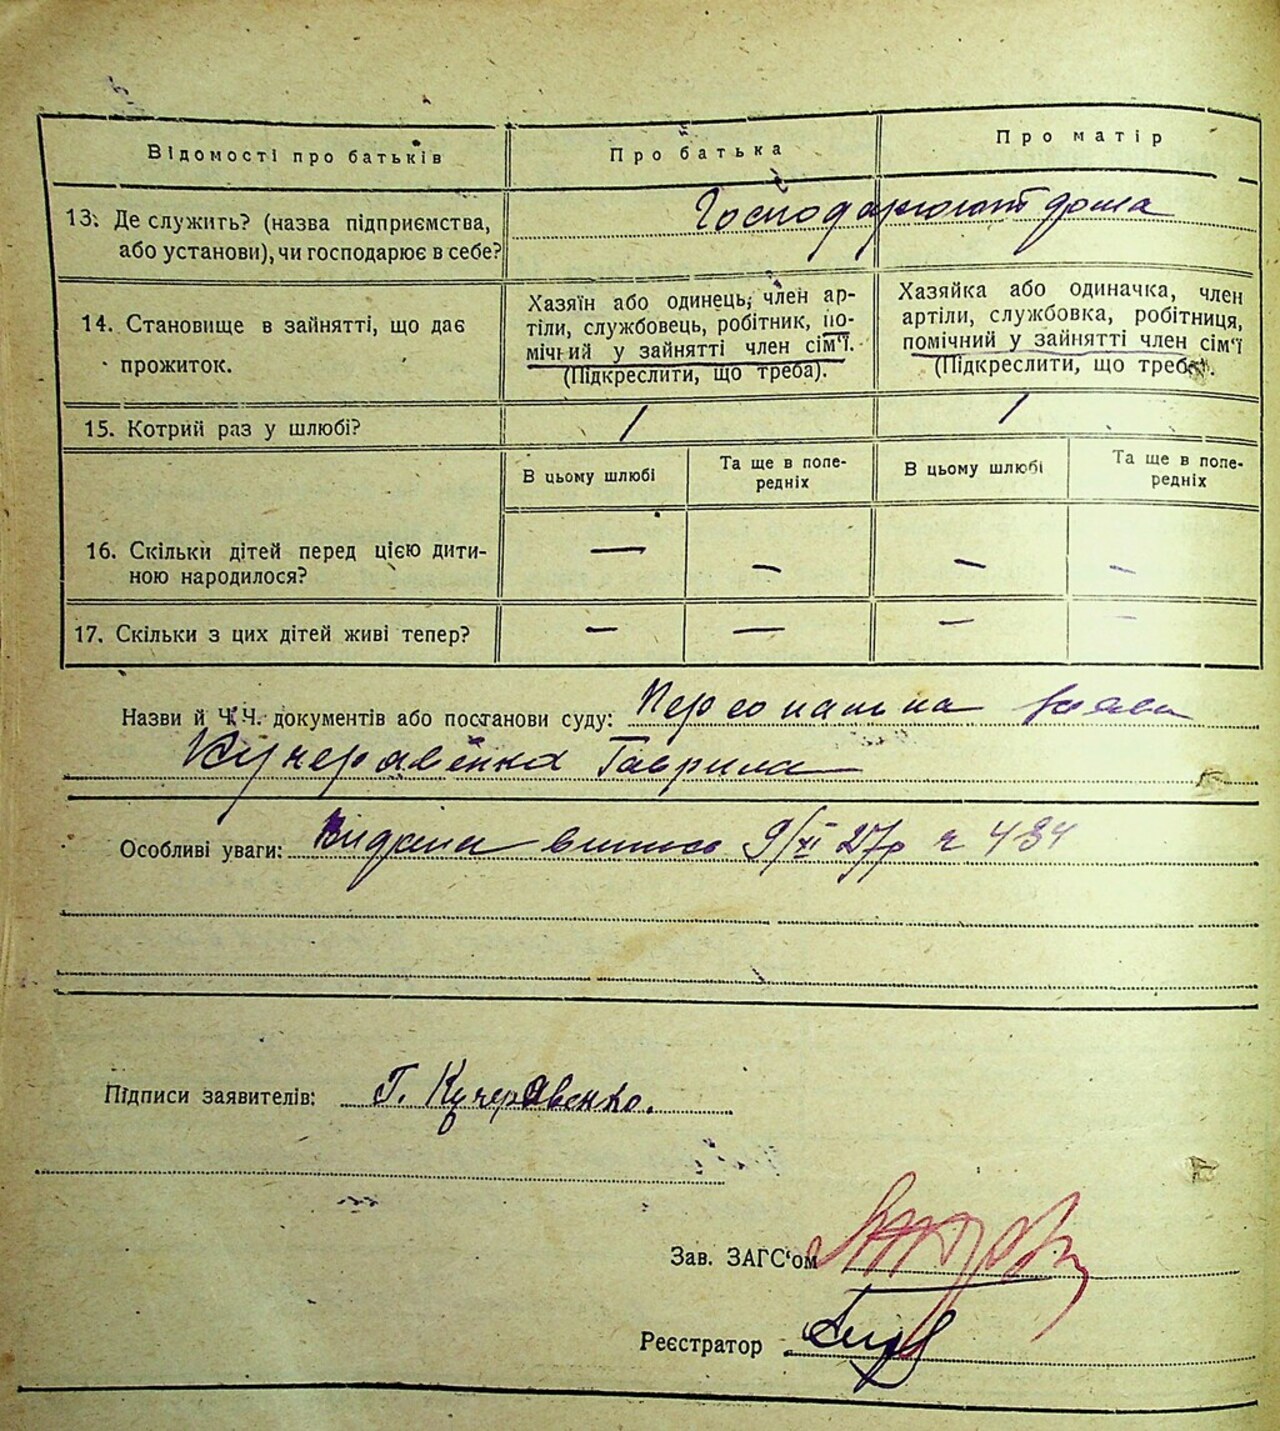 Відомості про батьків
Про батька
Про матір
13. Де служить? (назва підприємства,
або установи), чи господарює в себе?
Господарюют дома
14. Становище в зайнятті, що дає
прожиток.
Хазяїн або одинець, член ар-
тілі, службовець, робітник, по-
мічний у зайнятті член сім'ї.
(Підкреслити, що треба).
Хазяйка або одиначка, член
артілі, службовка, робітниця,
помічний у зайнятті член сім'ї
(Підкреслити, що треба).
15. Котрий раз у шлюбі?
/
/
В цьому шлюбі
Та ще в попе-
редніх
В цьому шлюбі
Та ще в попе-
редніх
16. Скільки дітей перед цією дити-
ною народилося?
— — — —
17. Скільки з цих дітей живі тепер?
— — — —
Назви й Ч.Ч. документів або постанови суду: Персональна заява
Кучеравенка Гаврила
Особливі уваги: Видана випись 9/XI 27р ч 434
Підписи заявителів: Г. Кучеравенко.
Зав. ЗАГС'ом
Реєстратор